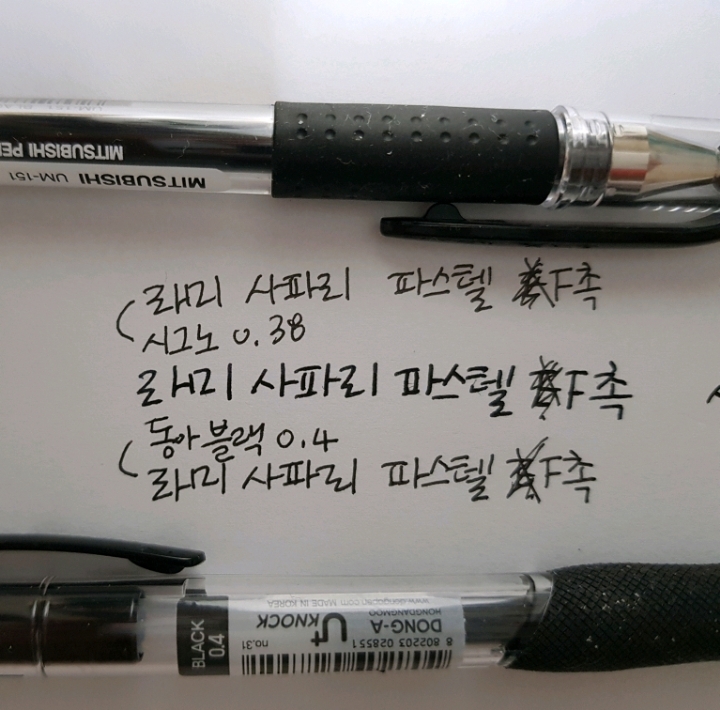 MITSUBISHI PE
MITSUBISHI UM-151
라미 사파리 파스텔 F촉
시그노 0.38
라미 사파리 파스텔 F촉
동아 블랙 0.4
라미 사파리 파스텔 F촉
BLACK
0.4
MADE IN KOREA
U+ KNOCK
no.31
DONG-A
HONGDANGMOO
8 802203 028551